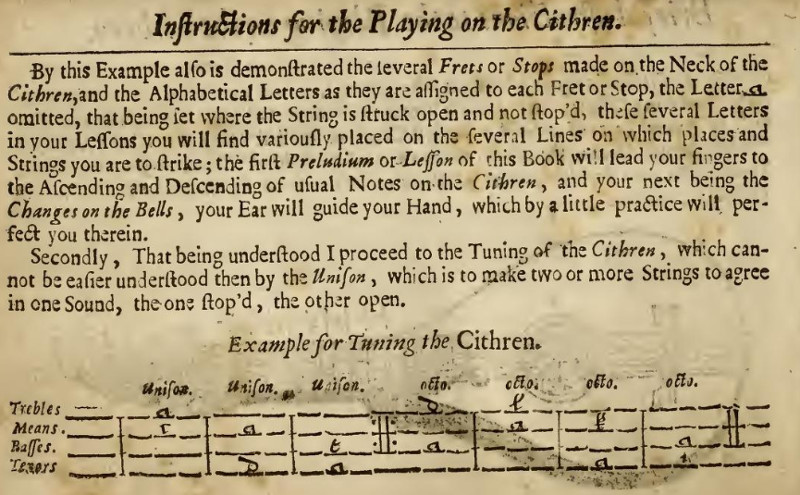 Inſtructions for the Playing on the Cithren.
By this Example alſo is demonſtrated the ſeveral Frets or Stops made on the Neck of the
Cithren, and the Alphabetical Letters as they are aſſigned to each Fret or Stop, the Letter a
omitted, that being ſet where the String is ſtruck open and not ſtop'd, theſe ſeveral Letters
in your Leſſons you will find variouſly placed on the ſeveral Lines on which places and
Strings you are to ſtrike; the firſt Preludium or Leſſon of this Book will lead your fingers to
the Aſcending and Deſcending of uſual Notes on the Cithren, and your next being the
Changes on the Bells, your Ear will guide your Hand, which by a little practice will per-
fect you therein.
Secondly, That being underſtood I proceed to the Tuning of the Cithren, which can-
not be eaſier underſtood then by the Uniſon, which is to make two or more Strings to agree
in one Sound, the one ſtop'd, the other open.
Example for Tuning the Cithren.
Uniſon. Uniſon. Uniſon. octo. octo. octo. octo.
Trebles a
Means. r a a
Baſſes. a a
Tenors a a